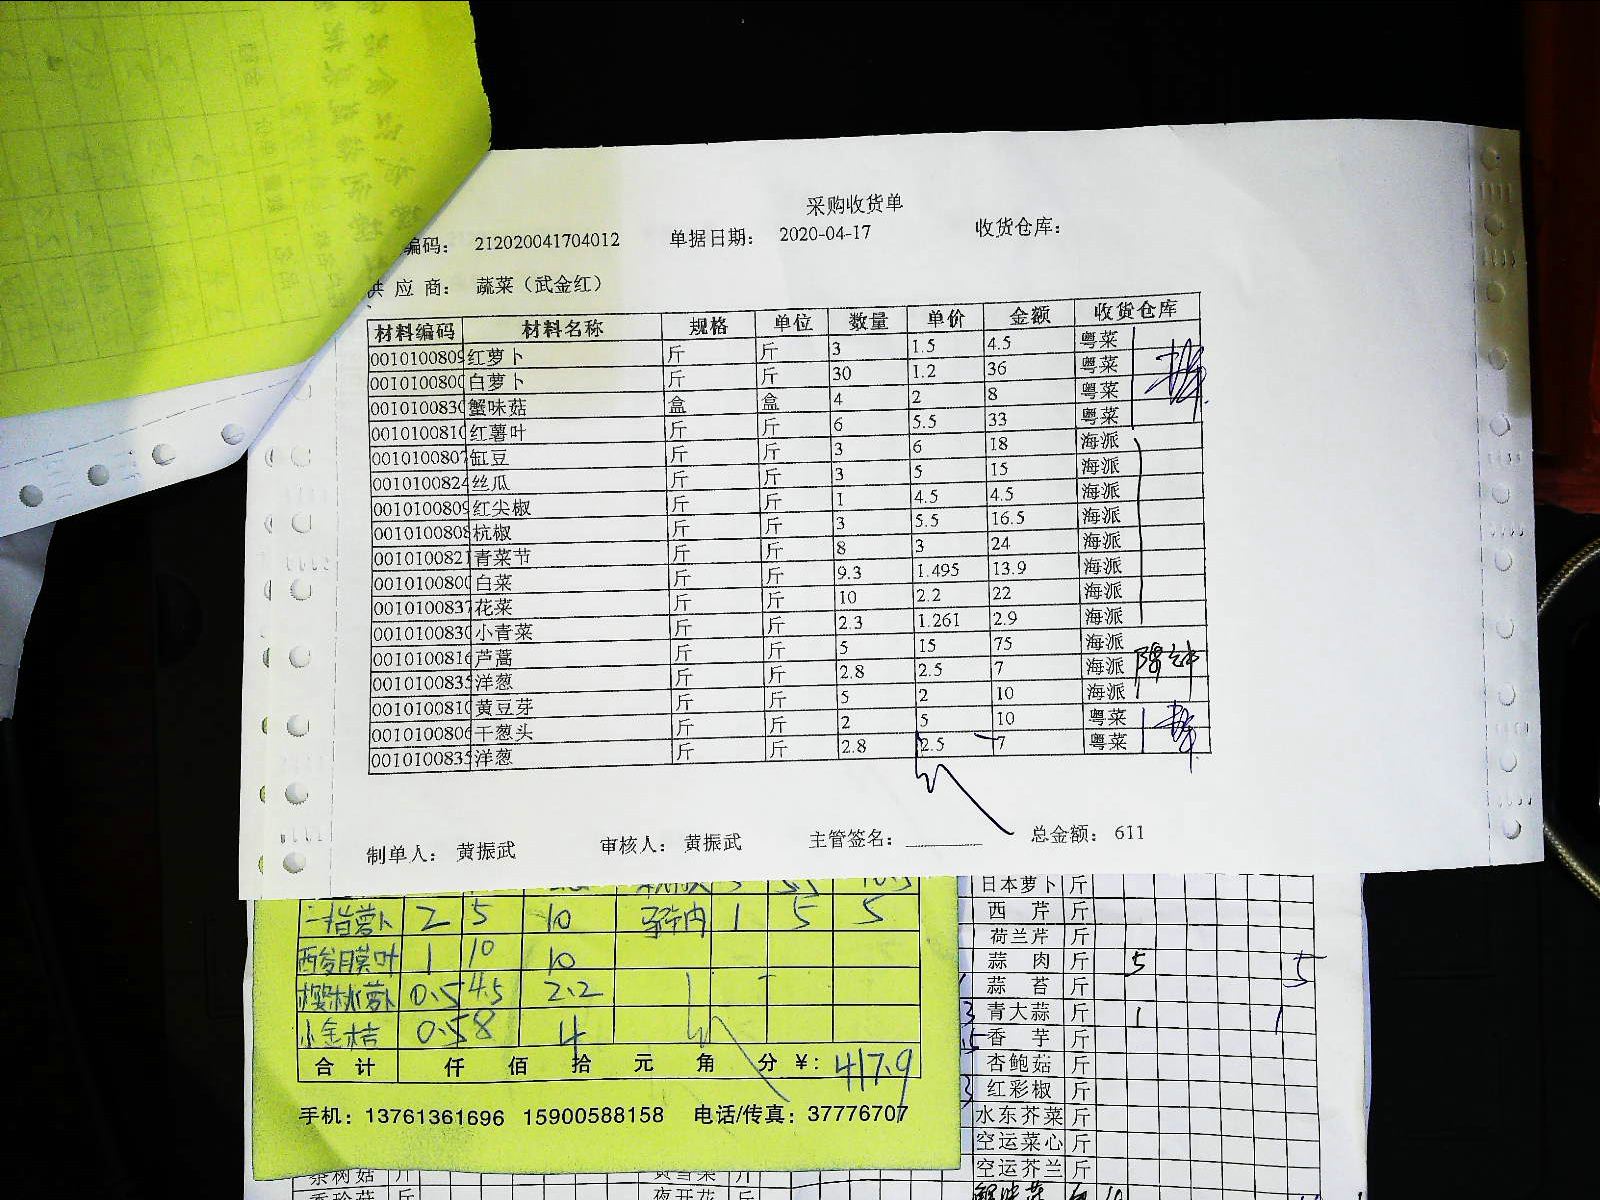 采购收货单
编码： 212020041704012 单据日期： 2020-04-17 收货仓库：
供 应 商： 蔬菜（武金红）
材料编码 材料名称 规格 单位 数量 单价 金额 收货仓库
0010100809 红萝卜 斤 斤 3 1.5 4.5 粤菜
0010100800 白萝卜 斤 斤 30 1.2 36 粤菜
0010100830 蟹味菇 盒 盒 4 2 8 粤菜
0010100810 红薯叶 斤 斤 6 5.5 33 粤菜
0010100807 缸豆 斤 斤 3 6 18 海派
0010100824 丝瓜 斤 斤 3 5 15 海派
0010100809 红尖椒 斤 斤 1 4.5 4.5 海派
0010100808 杭椒 斤 斤 3 5.5 16.5 海派
0010100821 青菜节 斤 斤 8 3 24 海派
0010100800 白菜 斤 斤 9.3 1.495 13.9 海派
0010100837 花菜 斤 斤 10 2.2 22 海派
0010100830 小青菜 斤 斤 2.3 1.261 2.9 海派
0010100816 芦蒿 斤 斤 5 15 75 海派
0010100835 洋葱 斤 斤 2.8 2.5 7 海派
0010100810 黄豆芽 斤 斤 5 2 10 海派
0010100806 干葱头 斤 斤 2 5 10 粤菜
0010100835 洋葱 斤 斤 2.8 2.5 7 粤菜
制单人： 黄振武 审核人： 黄振武 主管签名： 总金额： 611
二指萝卜 2 5 10 1 5 5
酸膜叶 1 10 10
樱桃萝卜 0.5 4.5 2.2
小金桔 0.5 8 4
合 计 仟 佰 拾 元 角 分 ¥: 417.9
手机：13761361696 15900588158 电话/传真：37776707
日本萝卜 斤
西 芹 斤
荷兰芹 斤
蒜 肉 斤 5 5
蒜 苔 斤
青大蒜 斤 1 1
香 芋 斤
杏鲍菇 斤
红彩椒 斤
水东芥菜 斤
空运菜心 斤
空运芥兰 斤
茶树菇 斤
夜开花 斤